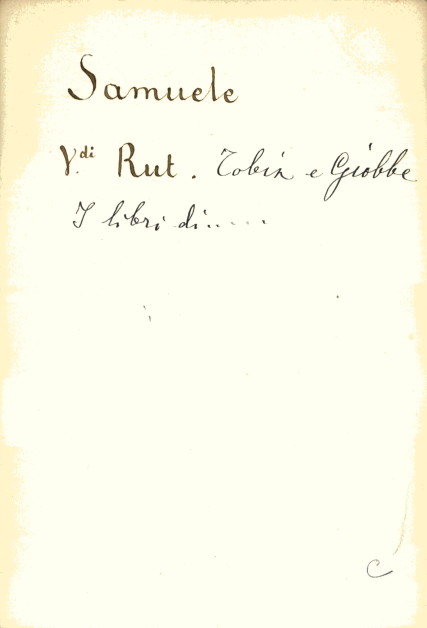 Samuele
V.di Rut. Tobia e Giobbe
I libri di.....
C